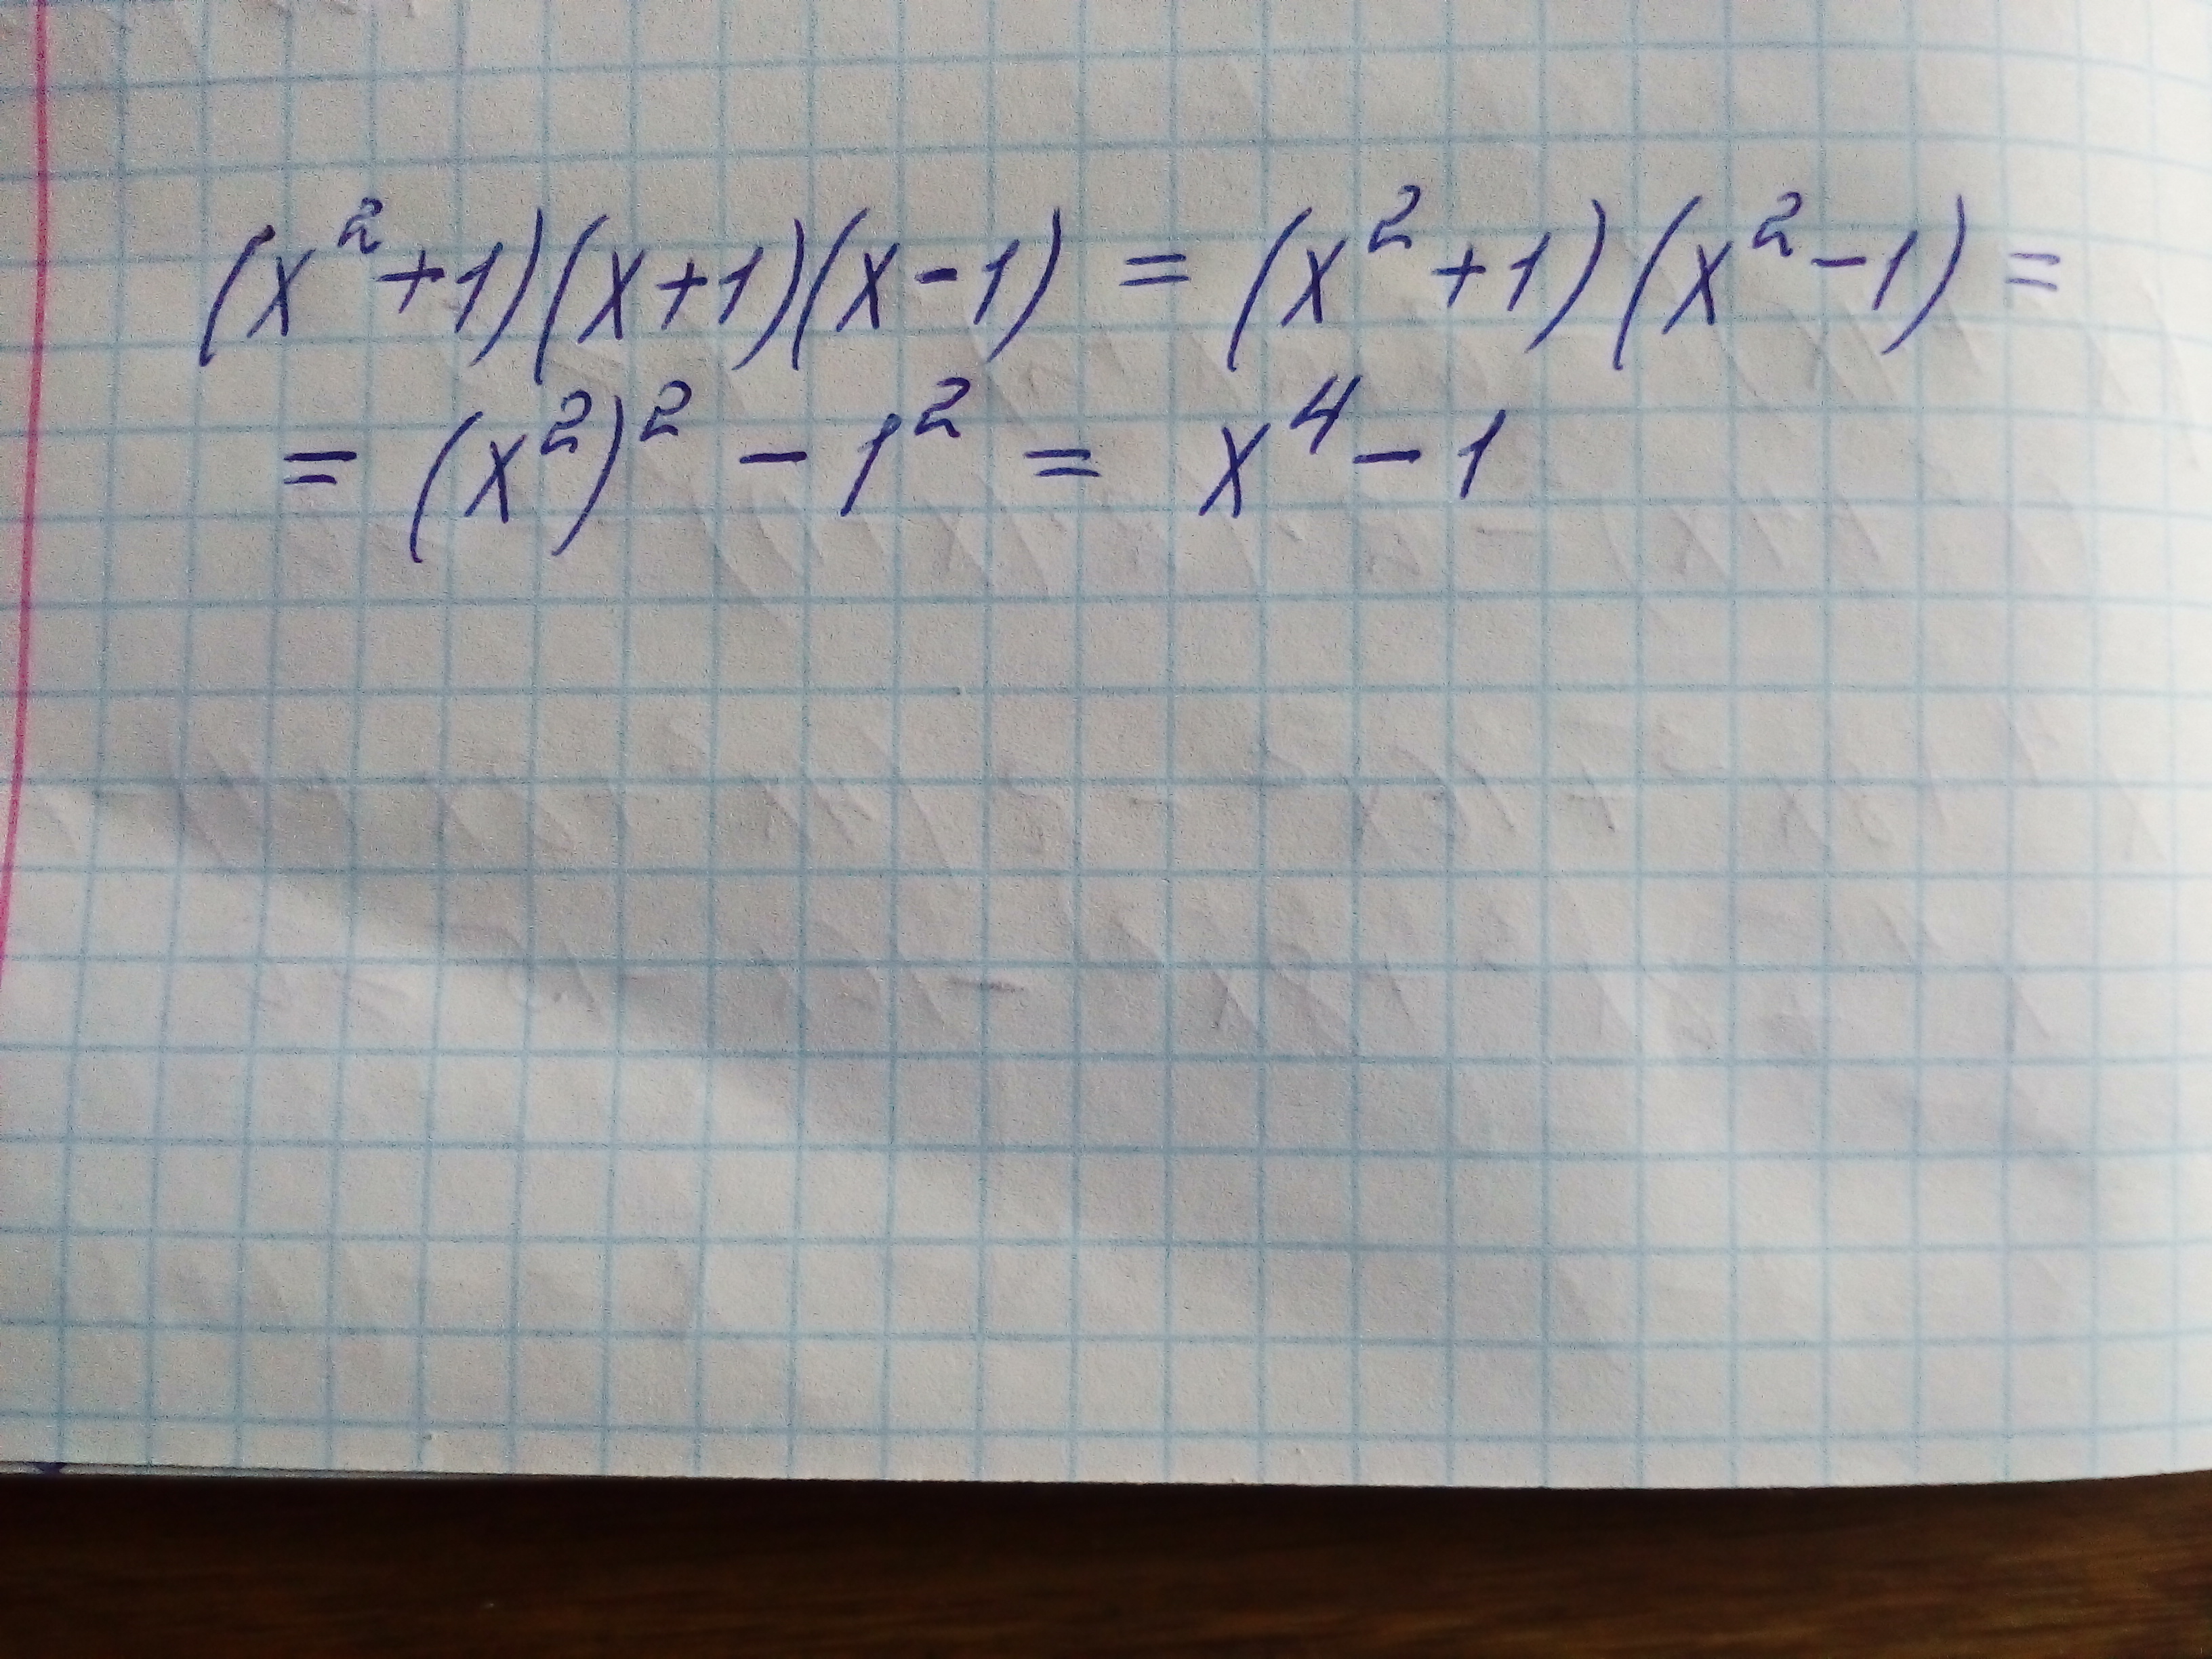 (x²+1)(x+1)(x-1) = (x²+1)(x²-1) =
= (x²)² - 1² = x⁴ - 1